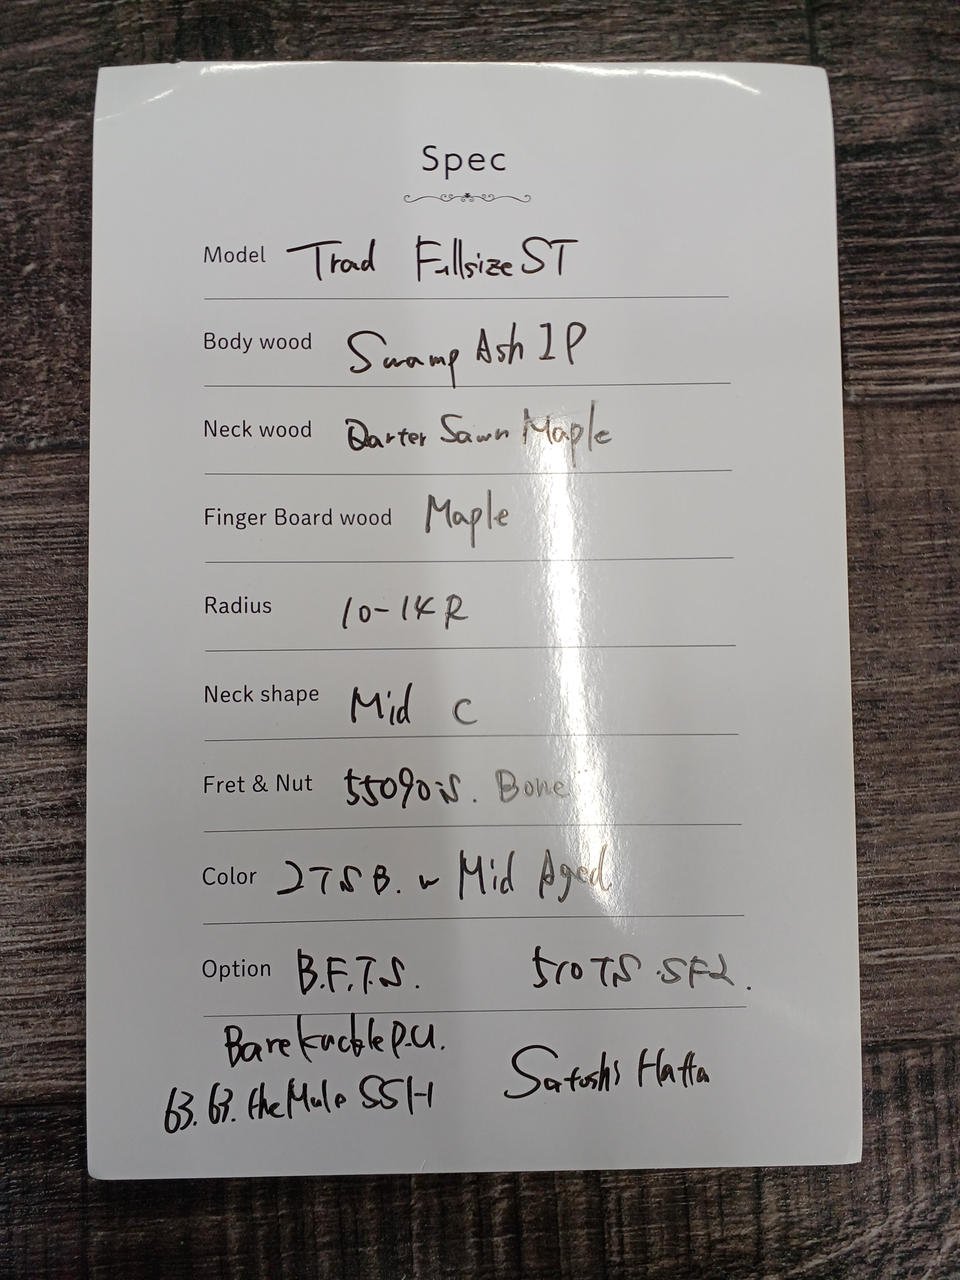 Spec
Model Trad Fullsize ST
Body wood Swamp Ash 1P
Neck wood Qarter Sawn Maple
Finger Board wood Maple
Radius 10-14R
Neck shape Mid C
Fret & Nut 55090 Bone
Color 2TSB. w Mid Aged
Option B.F.T.S. 510TS SF2.
Bareknuckle P.U.
63. 63. the Mule SSH
Satoshi Hatta